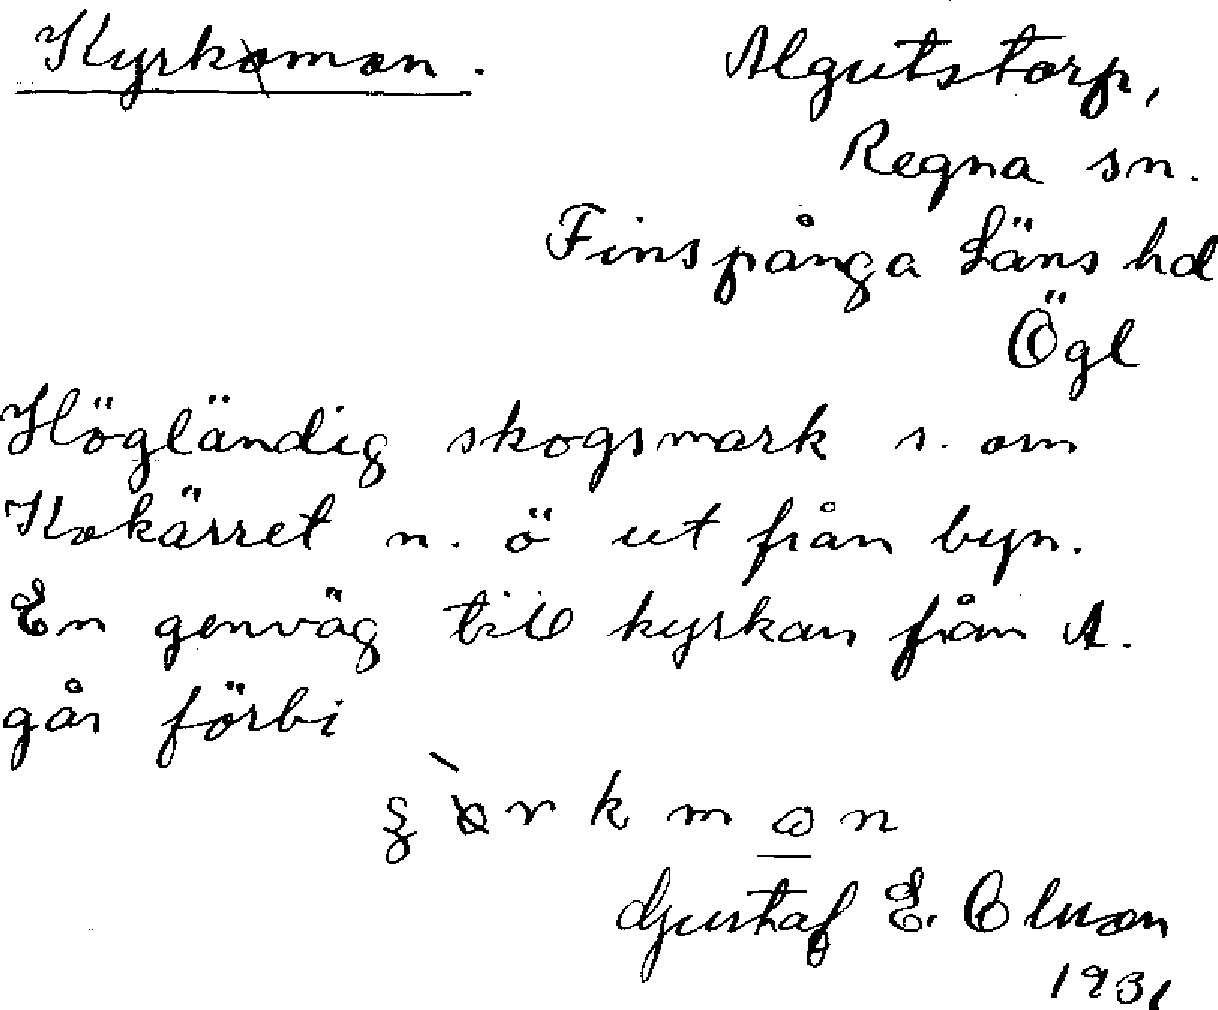 Kyrkomon.
Algutstorp,
Regna sn.
Finspånga Läns hd
Ögl
Högländig skogsmark s. om
Kokärret n. ö ut från byn.
En genväg till kyrkan från A.
går förbi
Gustaf E. Olsson
1931